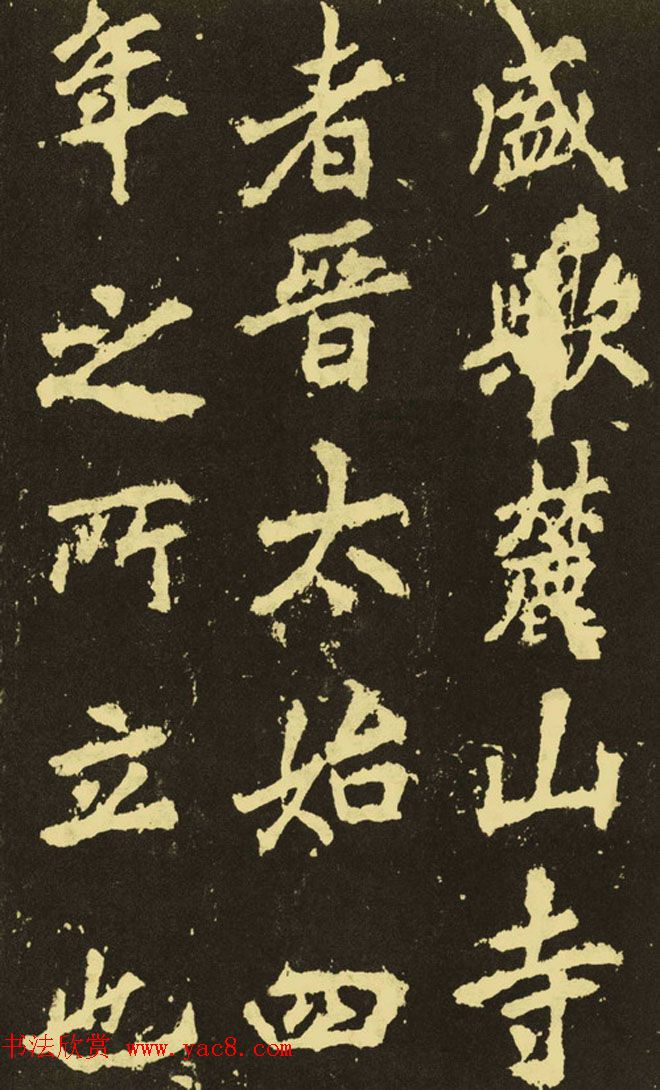 盛歟麓山寺
者晉太始四
年之所立也
书法欣赏 www.yac8.com